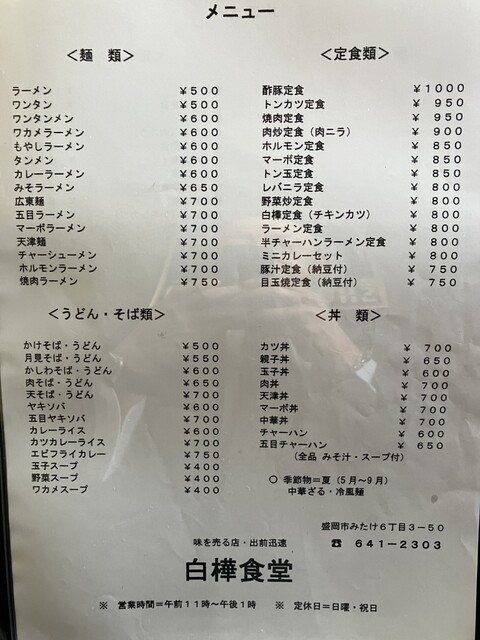 メニュー
＜麺　類＞
ラーメン　￥５００
ワンタン　￥５００
ワンタンメン　￥６００
ワカメラーメン　￥６００
もやしラーメン　￥６００
タンメン　￥６００
カレーラーメン　￥６００
みそラーメン　￥６５０
広東麺　￥７００
五目ラーメン　￥７００
マーボラーメン　￥７００
天津麺　￥７００
チャーシューメン　￥７００
ホルモンラーメン　￥７００
焼肉ラーメン　￥７５０
＜定食類＞
酢豚定食　￥１０００
トンカツ定食　￥９５０
焼肉定食　￥９５０
肉炒定食（肉ニラ）　￥９００
ホルモン定食　￥８５０
マーボ定食　￥８５０
トン玉定食　￥８５０
レバニラ定食　￥８００
野菜炒定食　￥８００
白樺定食（チキンカツ）　￥８００
ラーメン定食　￥８００
半チャーハンラーメン定食　￥８００
ミニカレーセット　￥８００
豚汁定食（納豆付）　￥７５０
目玉焼定食（納豆付）　￥７５０
＜うどん・そば類＞
かけそば・うどん　￥５００
月見そば・うどん　￥５５０
かしわそば・うどん　￥６００
肉そば・うどん　￥６５０
天そば・うどん　￥７００
ヤキソバ　￥６００
五目ヤキソバ　￥７００
カレーライス　￥６００
カツカレーライス　￥７００
エビフライカレー　￥７５０
玉子スープ　￥４００
野菜スープ　￥４００
ワカメスープ　￥４００
＜丼　類＞
カツ丼　￥７００
親子丼　￥６５０
玉子丼　￥６００
肉丼　￥７００
天津丼　￥７００
マーボ丼　￥７００
中華丼　￥７００
チャーハン　￥６００
五目チャーハン　￥６５０
（全品 みそ汁・スープ付）
○ 季節物＝夏（５月～９月）
中華ざる・冷風麺
盛岡市みたけ６丁目３－５０
味を売る店・出前迅速　☎ ６４１－２３０３
白樺食堂
※　営業時間＝午前１１時～午後１時　※　定休日＝日曜・祝日